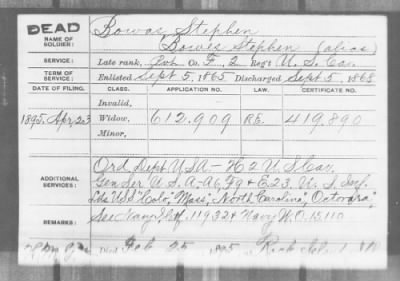 DEAD
NAME OF SOLDIER: Bowas Stephen
Bowes Stephen (alias)
SERVICE: Late rank, Pvt. Co. F, 2 Reg't U. S. Cav.
TERM OF SERVICE: Enlisted Sept 5, 1865 Discharged Sept 5, 1868
DATE OF FILING. CLASS. APPLICATION NO. LAW. CERTIFICATE NO.
Invalid,
1895, Apr. 23 Widow, 612,909 RE. 419,890
Minor,
ADDITIONAL SERVICES: Ord Dept. U S A - H 2 U.S. Cav.
Gen Ser U.S.A - A 6, F 9 & E. 23. U. S. Inf.
U S S "Colo", "Mass", "North Carolina", "Octorara",
REMARKS: See Navy 11932 & Navy W.O. 15110
Died Feb 25, 1895, Rock